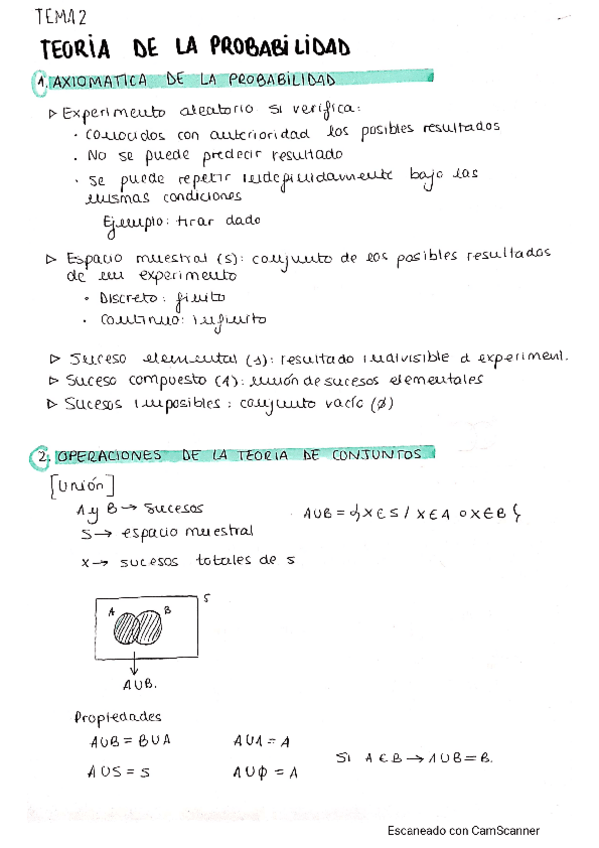 TEMA 2
TEORIA DE LA PROBABILIDAD
1. AXIOMATICA DE LA PROBABILIDAD
▷ Experimento aleatorio si verifica:
· Conocidos con anterioridad los posibles resultados
· No se puede predecir resultado
· Se puede repetir indefinidamente bajo las
mismas condiciones
Ejemplo: tirar dado
▷ Espacio muestral (S): conjunto de los posibles resultados
de un experimento
· Discreto: finito
· Continuo: infinito
▷ Suceso elemental (s): resultado indivisible d experiment.
▷ Suceso compuesto (A): unión de sucesos elementales
▷ Sucesos imposibles: conjunto vacío (∅)
2. OPERACIONES DE LA TEORIA DE CONJUNTOS
[Unión]
A y B → sucesos
A∪B = {X∈S / X∈A o X∈B}
S → espacio muestral
x → sucesos totales de s
S
A B
A∪B.
Propiedades
A∪B = B∪A A∪A = A
Si A∈B → A∪B = B.
A∪S = S A∪∅ = A
Escaneado con CamScanner